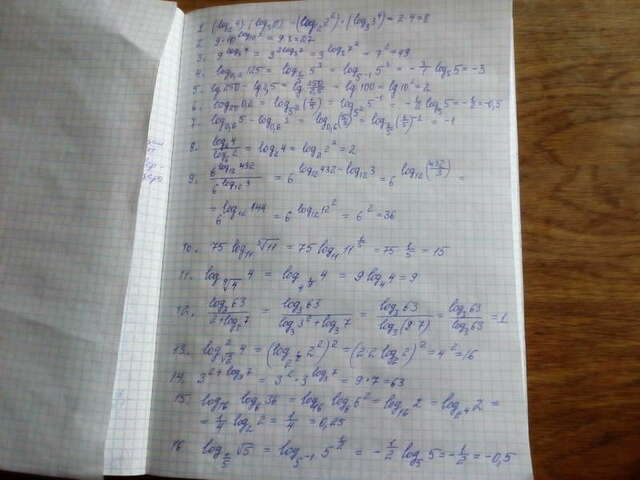 1.
2. 9·10
3. 9^{log_3 7} = 3^{2log_3 7} = 3^{log_3 7^2} = 7^2 = 49
4. log_{0,2} 125 = log_{1/5} 5^3 = log_{5^{-1}} 5^3 = -3/1 log_5 5 = -3
5. lg250 - lg2,5 = lg 250/2,5 = lg100 = lg10^2 = 2
6. log_{25} 0,2 = log_{5^2} (1/5) = log_{5^2} 5^{-1} = -1/2 log_5 5 = -1/2 = -0,5
7. log_{0,6} 5 - log_{0,6} 3 = log_{0,6} (5/3) = -1
8. = log_2 4 = log_2 2^2 = 2
9. 6^{log_{12} 432} / 6^{log_{12} 3} = 6^{log_{12} 432 - log_{12} 3} = 6^{log_{12} (432/3)} =
= 6^{log_{12} 144} = 6^{log_{12} 12^2} = 6^2 = 36
10. 75 log_{11} \sqrt[5]{11} = 75 log_{11} 11^{1/5} = 75·1/5 = 15
11. log_{\sqrt[9]{4}} 4 = log_{4^{1/9}} 4 = 9 log_4 4 = 9
12. log_3 63 / 2+log_3 7 = log_3 63 / log_3 3^2 + log_3 7 = log_3 63 / log_3 (9·7) = log_3 63 / log_3 63 = 1
13. log^2_{√2} 4 = (log_{2^{1/2}} 2^2)^2 = (2·2 log_2 2)^2 = 4^2 = 16
14. 3^{2+log_3 7} = 3^2·3^{log_3 7} = 9·7 = 63
15 log_{16} log_6 36 = log_{16} log_6 6^2 = log_{16} 2 = log_{2^4} 2 =
= 1/4 log_2 2 = 1/4 = 0,25
16 log_{1/5} √5 = log_{5^{-1}} 5^{1/2} = -1/2 log_5 5 = -1/2 = -0,5